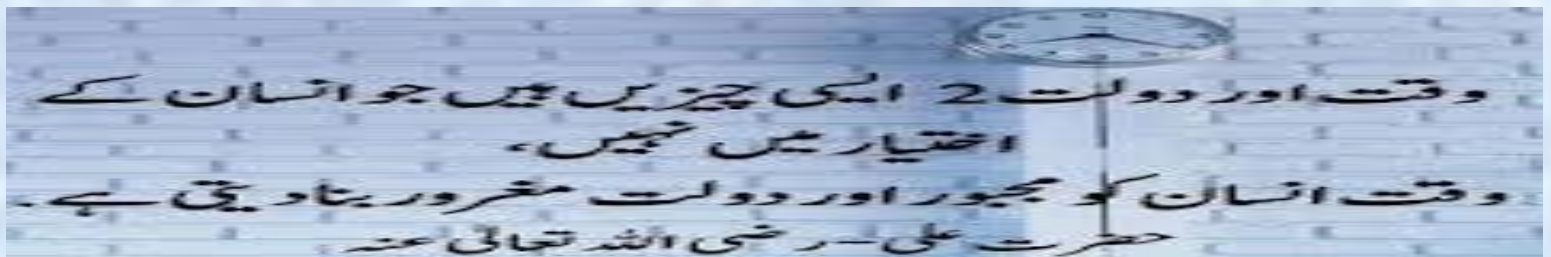 وقت اور دولت 2 ایسی چیزیں ہیں جو انسان کے
اختیار میں نہیں،
وقت انسان کو مجبور اور دولت مغرور بنا دیتی ہے.
حضرت علی-رضی اللہ تعالیٰ عنہ